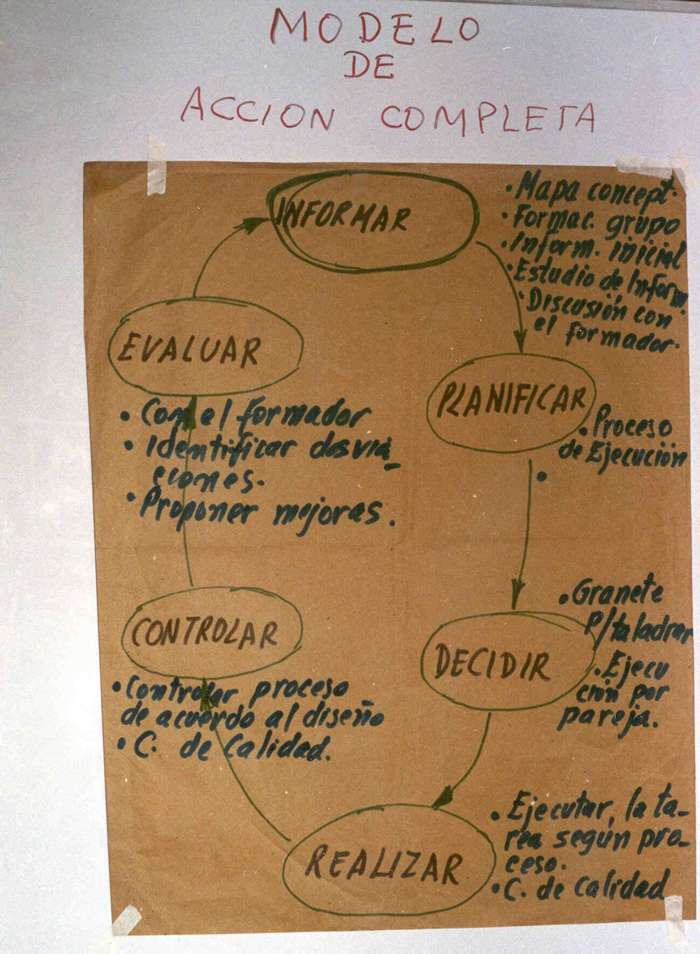 MODELO
DE
ACCION COMPLETA
INFORMAR
• Mapa concept.
• Formac. grupo
• Inform. inicial
• Estudio de Inform.
• Discusión con
el formador.
PLANIFICAR
• Proceso
de Ejecución
DECIDIR
• Granete
P/taladrar
• Ejecu
ción por
pareja.
REALIZAR
• Ejecutar, la ta-
rea según pro-
ceso.
• C. de calidad
CONTROLAR
• Controlar proceso
de acuerdo al diseño
• C. de Calidad.
EVALUAR
• Con el formador
• Identificar desvia-
ciones.
• Proponer mejoras.